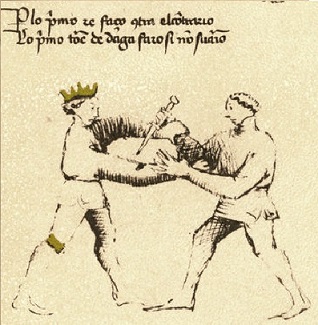 Plo pͥmo re faço ɔtra elcõtrario
Lo pͥmo tore de daga farosi nõ suario